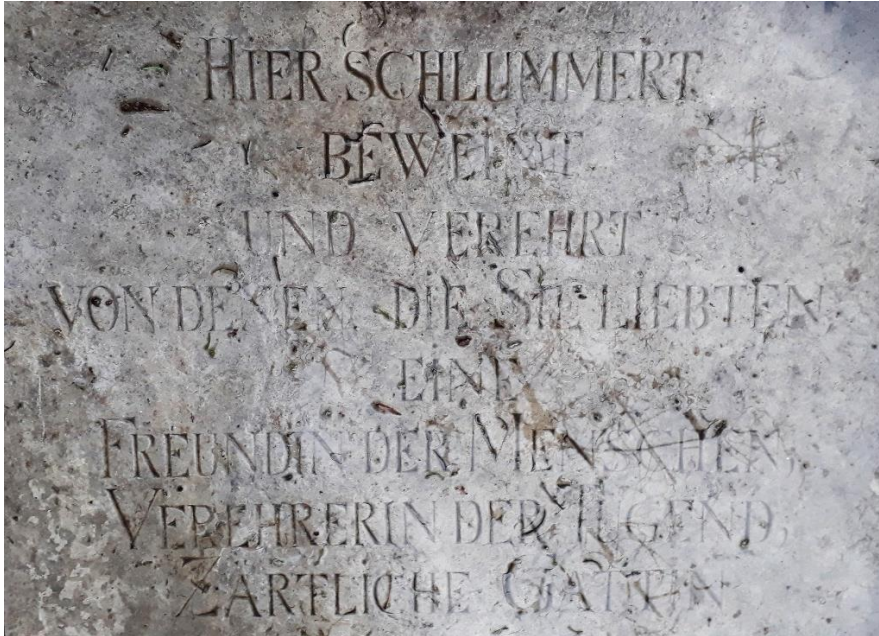 HIER SCHLUMMERT
BEWEINT
UND VEREHRT
VON DENEN, DIE SIE LIEBTEN,
EINE
FREUNDIN DER MENSCHEN,
VEREHRERIN DER TUGEND,
ZÄRTLICHE GATTIN